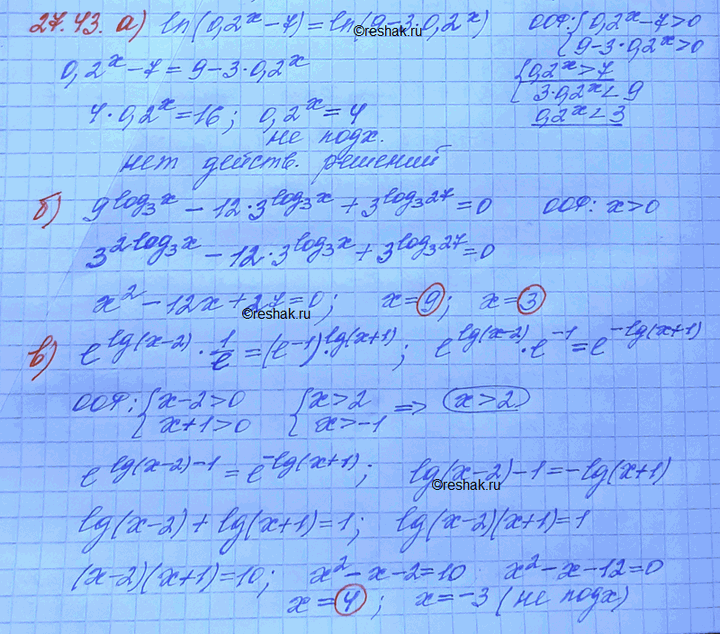 27.43. а) ln(0,2^x – 7) = ln(9 – 3·0,2^x)   ООФ: {0,2^x – 7 > 0
{9 – 3·0,2^x > 0
©reshak.ru
0,2^x – 7 = 9 – 3·0,2^x   {0,2^x > 7
3·0,2^x < 9
4·0,2^x = 16; 0,2^x = 4   0,2^x < 3
не подх.
нет действ. решений
б) 9^(log₃x) – 12·3^(log₃x) + 3^(log₃27) = 0   ООФ: x > 0
3^(2log₃x) – 12·3^(log₃x) + 3^(log₃27) = 0
x² – 12x + 27 = 0; x = 9; x = 3
©reshak.ru
в) e^(lg(x–2)) · 1/e = (e^(–1))·^(lg(x+1)); e^(lg(x–2)) · e^(–1) = e^(–lg(x+1))
ООФ: {x – 2 > 0   {x > 2   => x > 2
{x + 1 > 0   {x > –1
e^(lg(x–2)–1) = e^(–lg(x+1)); lg(x–2) – 1 = –lg(x+1)
©reshak.ru
lg(x–2) + lg(x+1) = 1; lg(x–2)(x+1) = 1
(x–2)(x+1) = 10; x² – x – 2 = 10   x² – x – 12 = 0
x = 4; x = –3 (не подх)